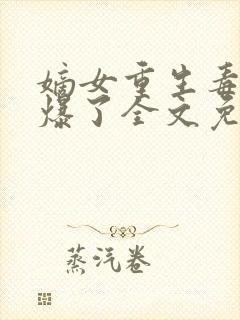 嫡女重生毒
爆了全文免
蒸汽卷